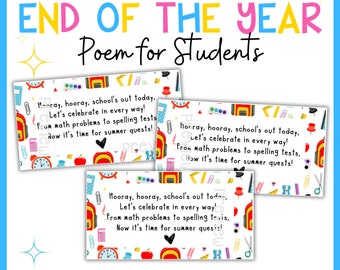 END OF THE YEAR
Poem for Students
Hooray, hooray, school's out today,
Let's celebrate in every way!
From math problems to spelling tests,
Now it's time for summer quests!
Hooray, hooray, school's out today,
Let's celebrate in every way!
From math problems to spelling tests,
Now it's time for summer quests!
Hooray, hooray, school's out today,
Let's celebrate in every way!
From math problems to spelling tests,
Now it's time for summer quests!